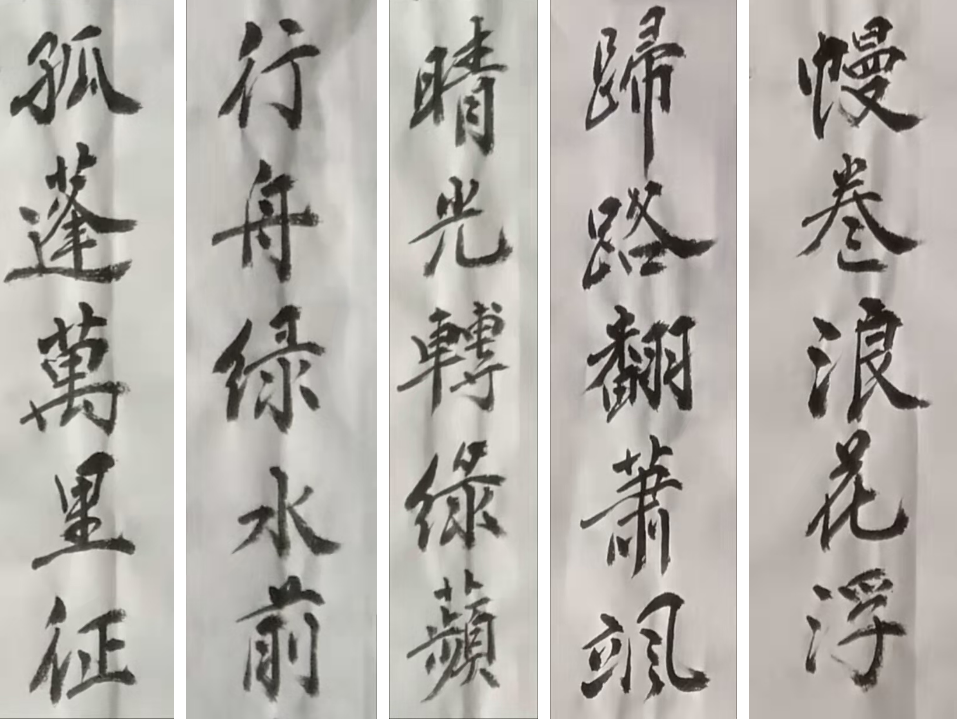 幔卷浪花浮
歸路翻蕭颯
晴光轉綠蘋
行舟绿水前
孤蓬萬里征